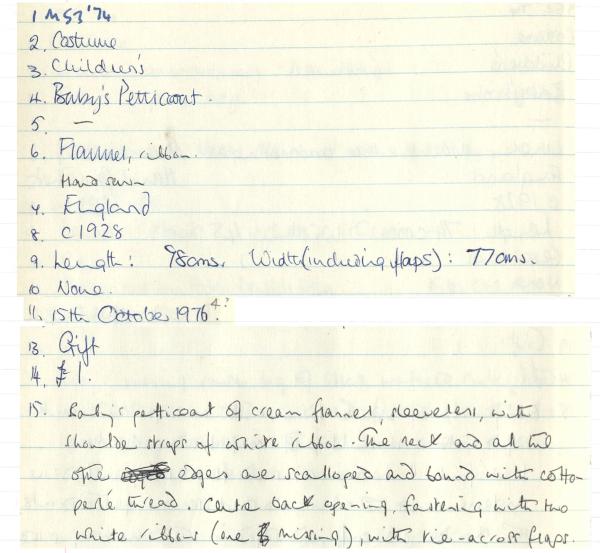 1 MS3 '74
2. Costume
3. Children's
4. Baby's Petticoat.
5. —
6. Flannel, ribbon.
Hand sewn
7. England
8. C1928
9. Length: 98cms. Width (including flaps): 77cms.
10 None.
11. 15th October 1976 4?
13. Gift
14. £1.
15. Baby's petticoat of cream flannel, sleeveless, with
shoulder straps of white ribbon. The neck and all the
other edges are scalloped and bound with cotton
perlé thread. Centre back opening, fastening with two
white ribbons (one missing), with tie-across flaps.